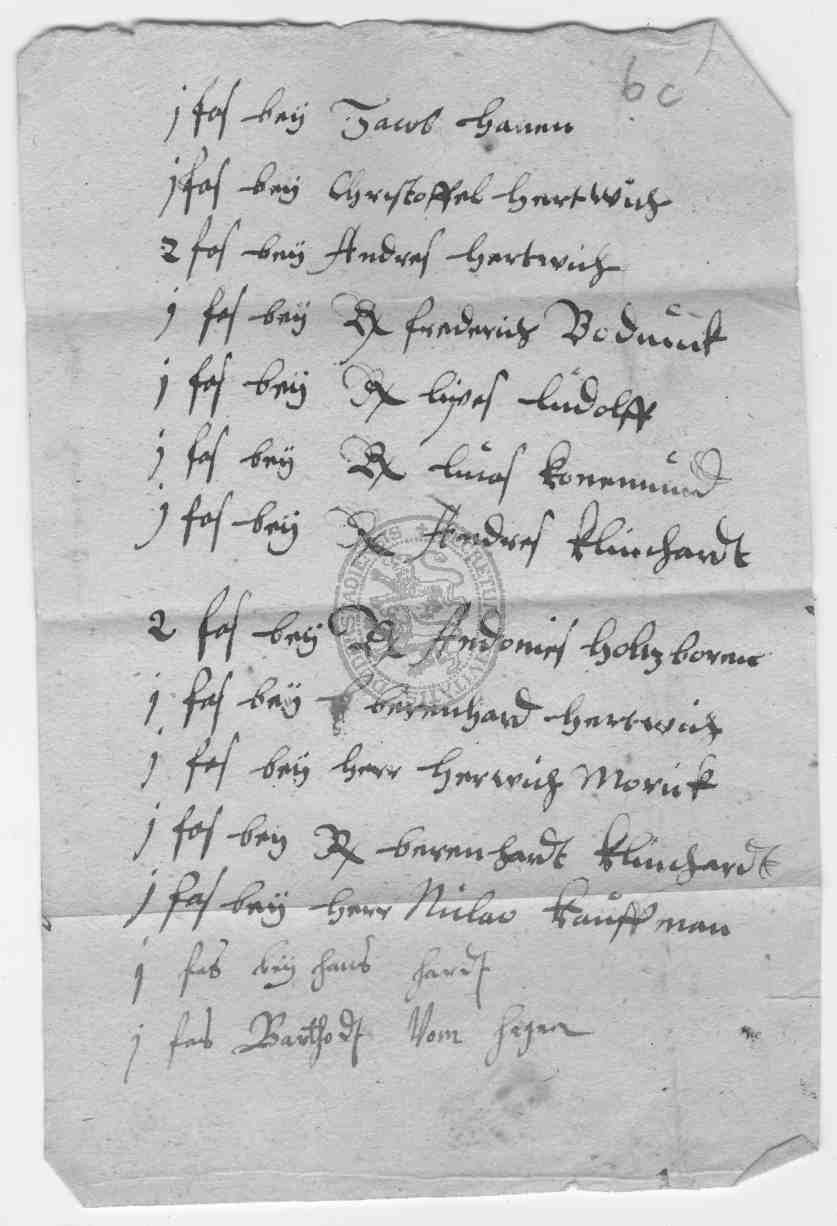 6c
j fas beÿ Jacob Hanen
j fas beÿ Christoffel Hertwich
2 fas beÿ Andres Hertwich
j fas beÿ R frederich Bodmück
j fas beÿ R lips ludolff
j fas beÿ R lucas konemund
j fas beÿ R Andres klinchardt
2 fas beÿ R Andonies holtzboren
j fas beÿ berenhard hertwich
j fas beÿ herr herwich Morick
j fas beÿ R berenhardt klinchardt
j fas beÿ herr Niclao kauffman
j fas beÿ hans hardt
j fas Barthodt Vom